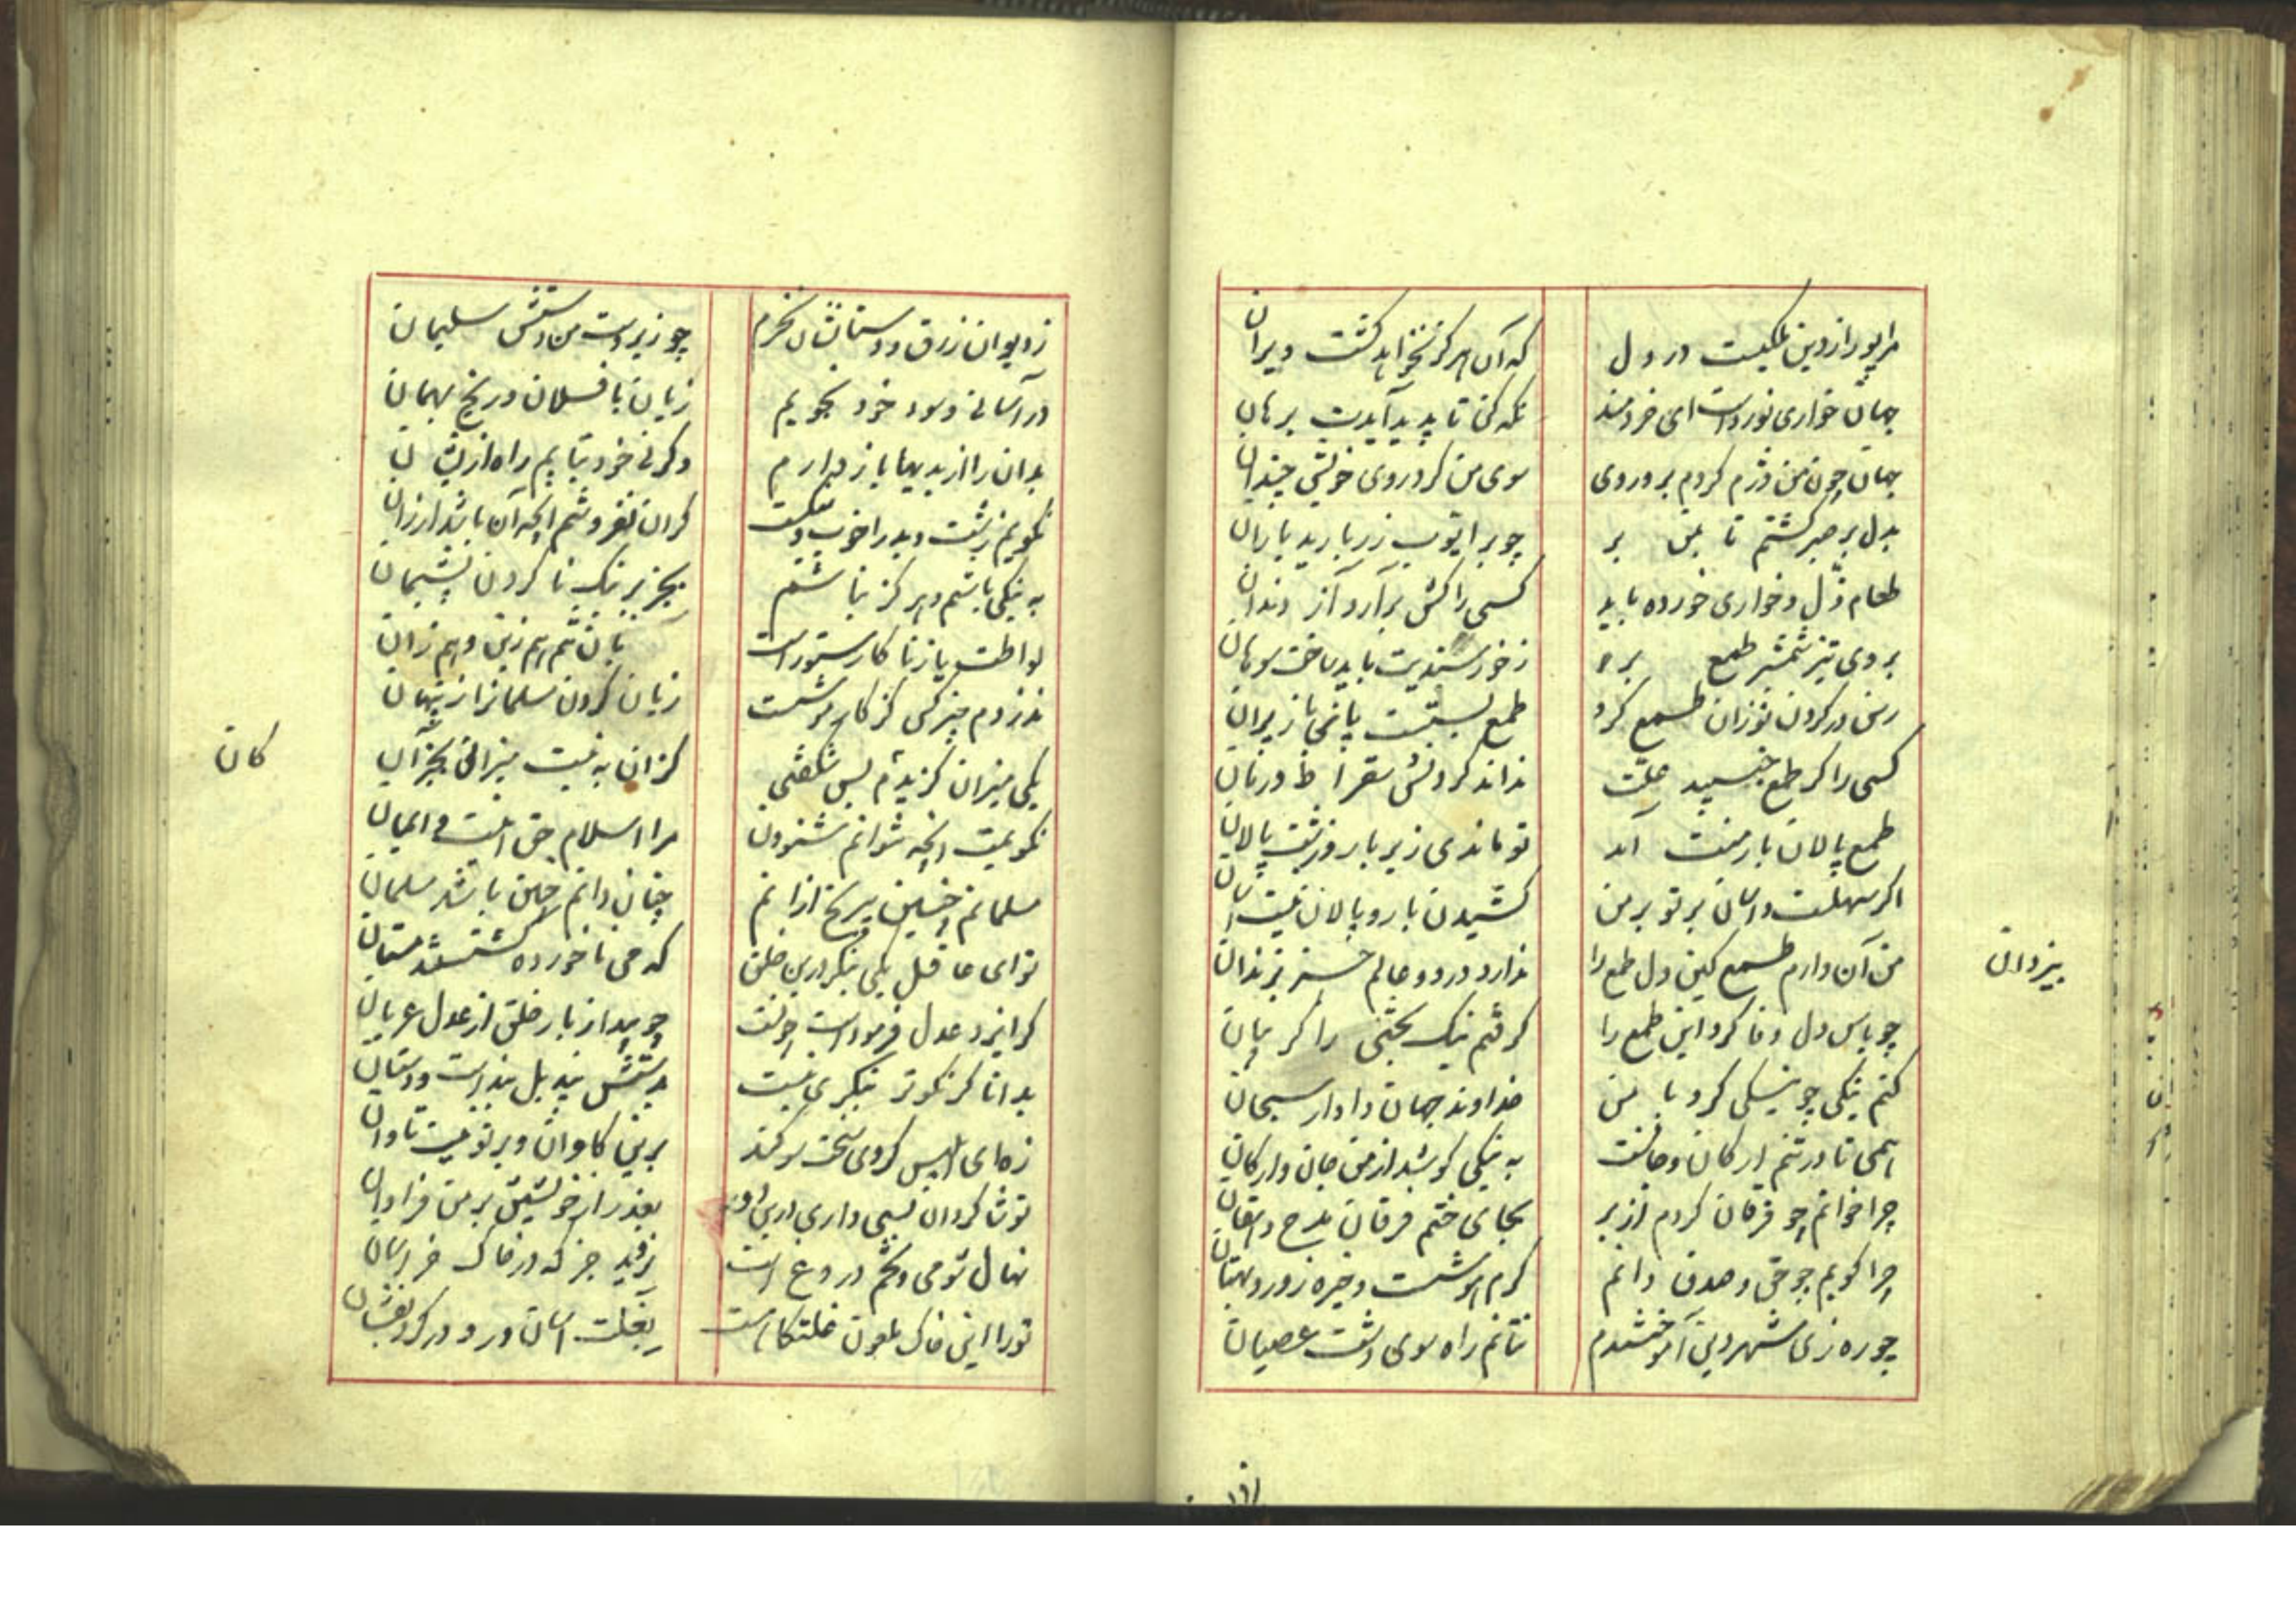 مرا پورا ز دین ملکیست در دل
که آن هرکز نخواهد کشت ویران
جهان خواری نورداست ای خردمند
نکه کن تا پدید آیدت برهان
جهان چون من دژم کردم برو روی
سوی من کرد روی خویش خندان
بدل پر صبر کشتم تا بمن بر
چو بر ایوب زر بارید باران
طعام ذل و خواری خورده باید
کسی را کش برآرد آز دندان
بروی تیز شمشیر طمع بر
ز خورسندیت باید ساخت سوهان
رسن در کردن توزان طمع کرد
طمع بستست پای باز پران
کسی را کز طمع جنبید علت
نداند کردنش سقراط درمان
طمع پالان بار منت آمد
تو ماندی زیر بار و زشت پالان
اکر سهلست و آسان بر تو بر من
کشیدن بار و پالان نیست آسان
من آن دارم طمع کین دل طمع را
ندارد در دو عالم جز بیزدان
یزدان
چو باس دل وفا کرد این طمع را
کرفتم نیک بختی را کریبان
کنم نیکی چو نیکی کرد با من
خداوند جهان دادار سبحان
همی تا در تنم ارکان و جانست
به نیکی کوشد از من جان و ارکان
چرا خوانم چو فرقان کردم از بر
بجای ختم فرقان مدح دهقان
چرا کویم چو حق و صدق دانم
کرم هوشست و خیره زور و بهتان
چو ره زی شهر دین آموختندم
نتانم راه سوی دشت عصیان
ز دیوان زرق و دستانشان نخرم
چو زیر دست من دستش سلیمان
در آسانی و سود خود نجویم
زیان با فسلان و رنج بهمان
بدان را از بدیها باز دارم
وکر نی خود بتابم راه ازیشان
نکویم زشت و بد را خوب و نیکست
کران نفروشم آنچه آن باشد ارزان
به نیکی باشم و هرکز نباشم
بجز بر نیک ناکردن پشیمان
لواطت یا زنا کار ستور است
بان تنم هم زین و هم زان
ندزدم چیز کس کز کار موشست
زیان کردن مسلمانرا ز پنهان
یکی میزان کزیدم بس شکفتی
کزان به نیست میزانی بجز آن
کان
نکویمت آنچه نتوانم شنودن
مرا اسلام حق اینست و ایمان
مسلمانم چنین بی رنج ازانم
چنان دانم چنین باشد مسلمان
تو ای عاقل یکی بنکر درین خلق
که می ناخورده کشتستند مستان
کر ایزد عدل فرموداست چونست
چو بیدا ز بار خلق از عدل عریان
بدانا کر نکوتر بنکری نیست
بدستش بند بل بنداست و دستان
زه ای ابلیس کردی سخت سوکند
برین کاوان و بر تو نیست تاوان
تو شاکردان بسی داری درین دور
بغدر از خویشتن بر من فراوان
نهال شومی و تخم دروغ است
نروید جز که در خاک خراسان
تو را این خاک ملعون غلتکاه است
بغلت آسان درو در کرد بفشان